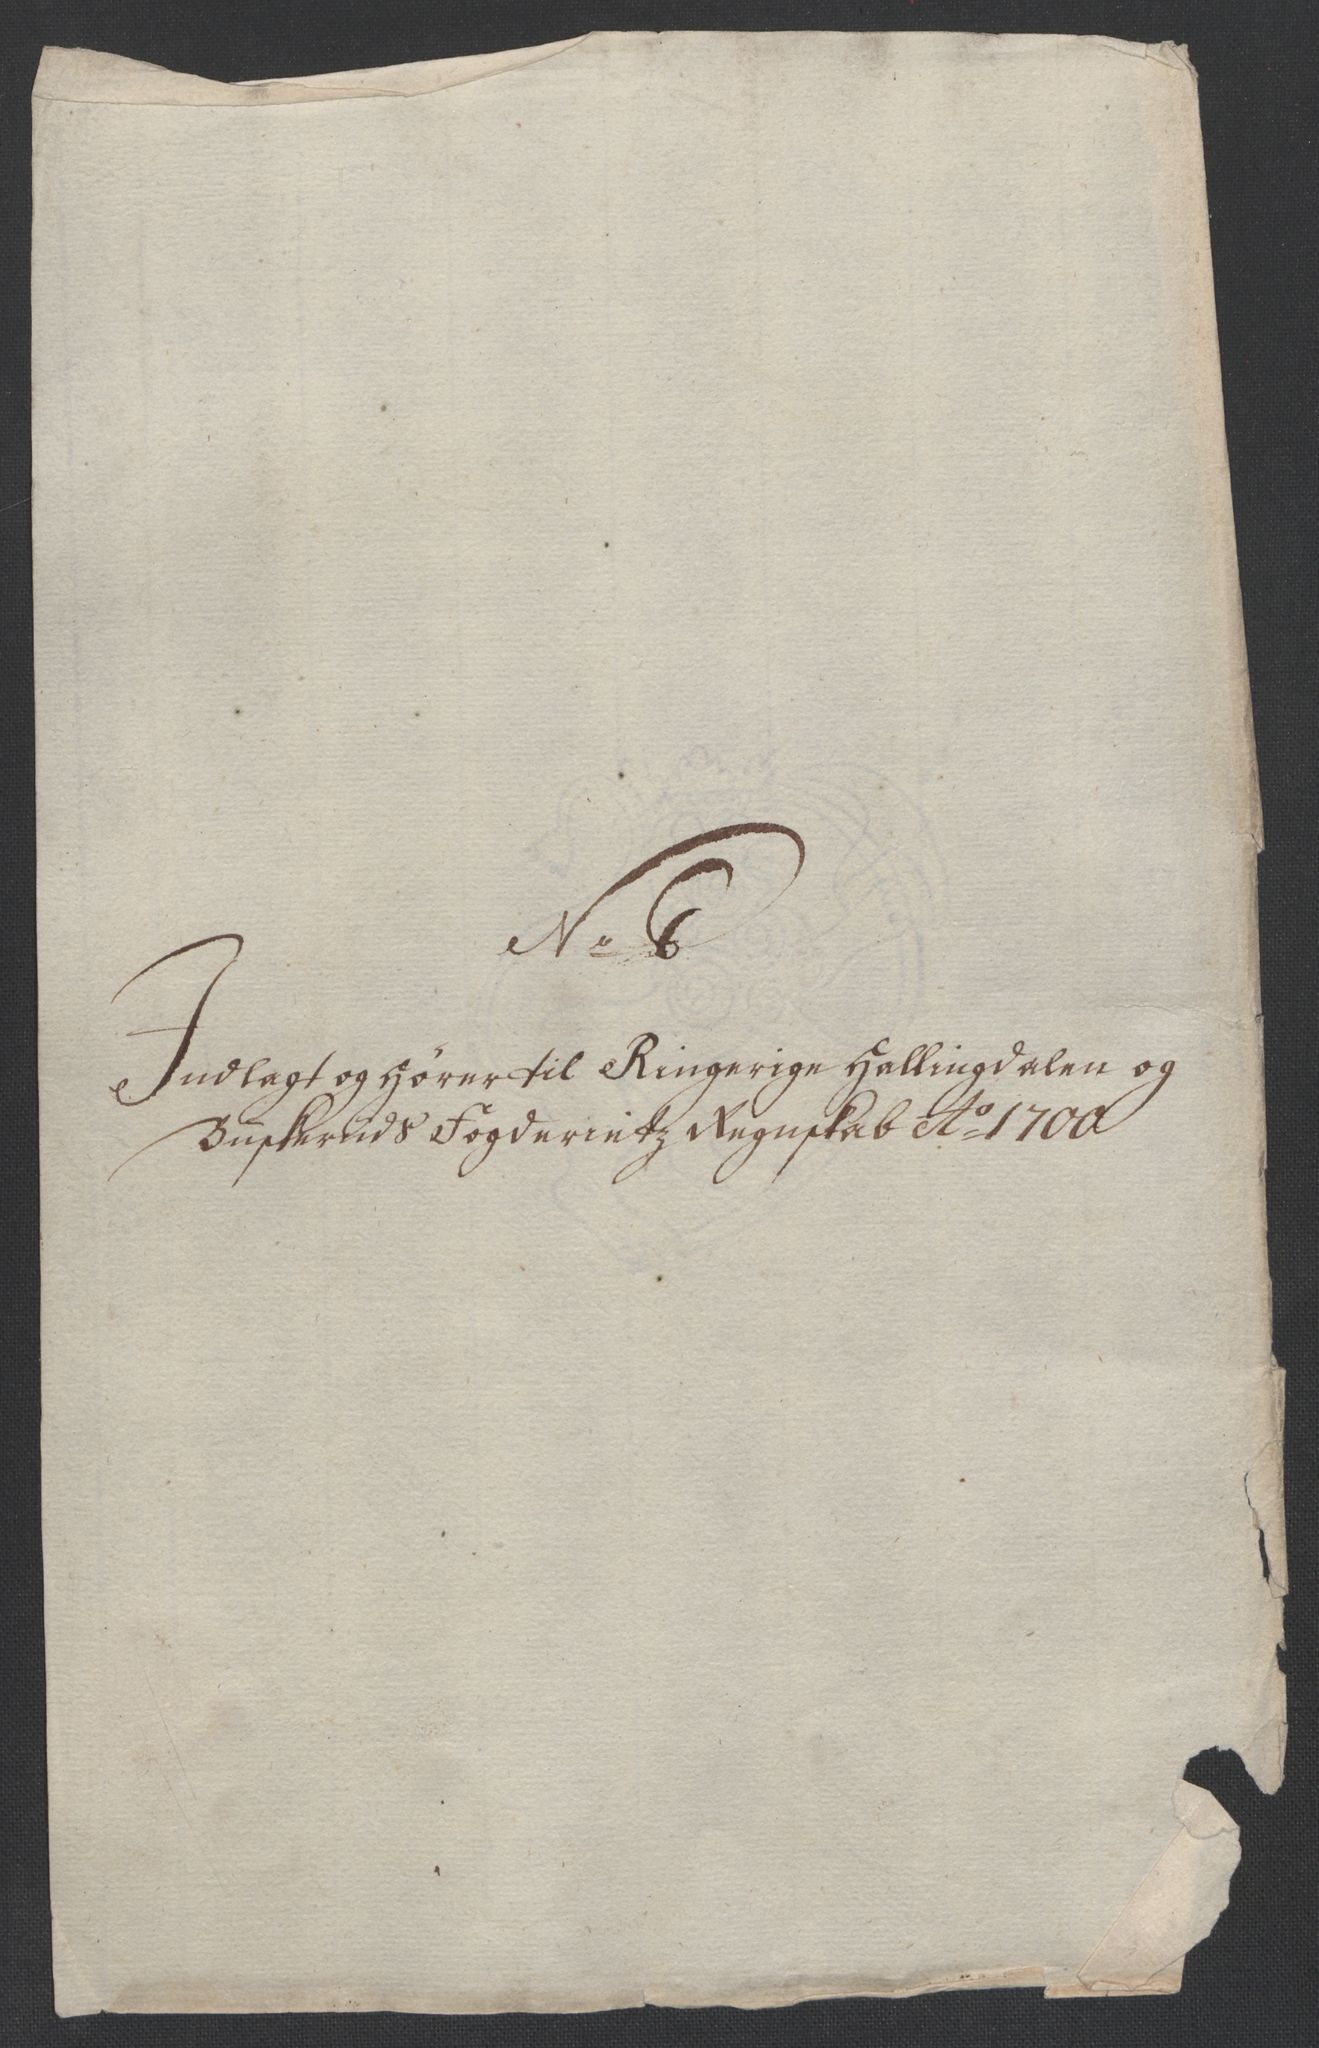 No 6
Indlagt og hører til Ringerige Hallingdalen og
Buskeruds Fogderietz Regnskab Ao 1700